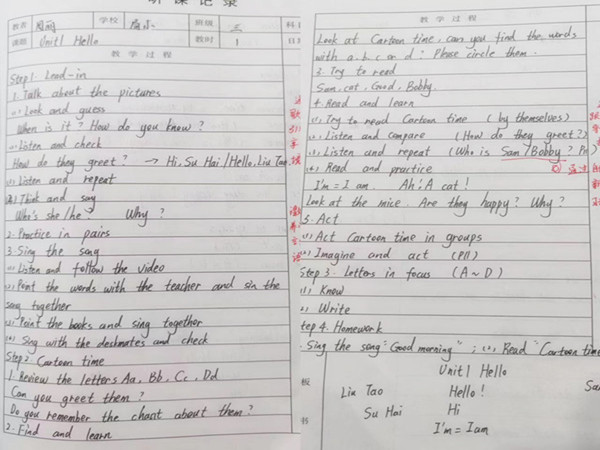 听课记录
教者 学校 班级 三 科目
课题 Unit1 Hello 教时 1
教学过程
Step1. Lead-in
1. Talk about the pictures
(1) Look and guess
When is it? How do you know?
(2) Listen and check
How do they greet? → Hi, Su Hai / Hello, Liu Tao
(3) Listen and repeat
(4) Think and say
Who's she/he? Why?
2. Practice in pairs
3. Sing the song
(1) Listen and follow the video
(2) Point the words with the teacher and sin the
song together
(3) Point the books and sing together
(4) Sing with the deskmates and check
Step2. Cartoon time
1. Review the letters Aa, Bb, Cc, Dd
Can you greet them?
Do you remember the chant about them?
2. Find and learn
教学过程
Look at Cartoon time, can you find the words
with a. b. c or d? Please circle them.
3. Try to read
Sam, cat, Good, Bobby.
4. Read and learn
(1) Try to read Cartoon time (by themselves)
(2) Listen and compare (How do they greet?)
(3) Listen and repeat (Who is Sam/Bobby?
(4) Read and practice
I'm = I am. Ah! A cat!
Look at the mice. Are they happy? Why?
5. Act
(1) Act Cartoon time in groups
(2) Imagine and act (P11)
Step 3. Letters in focus (A~D)
(1) Know
(2) Write
Step 4. Homework
Sing the song "Good morning"; (2) Read "Cartoon time
Unit1 Hello
Liu Tao Hello!
Su Hai Hi
I'm = I am